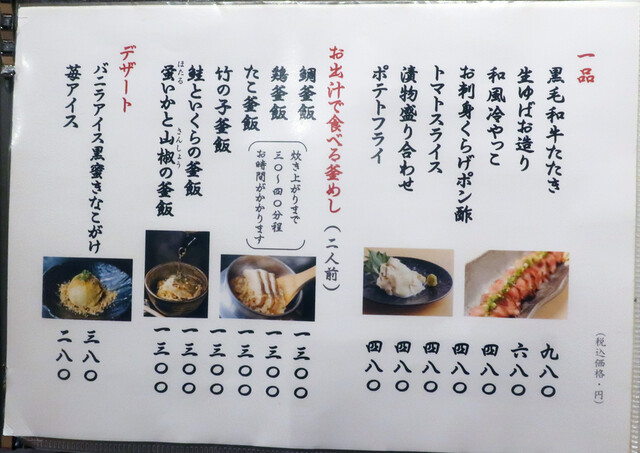 一品
黒毛和牛たたき 九八〇
生ゆばお造り 六八〇
和風冷やっこ 四八〇
お刺身くらげポン酢 四八〇
トマトスライス 四八〇
漬物盛り合わせ 四八〇
ポテトフライ 四八〇
(税込価格・円)
お出汁で食べる釜めし(二人前)
炊き上がりまで
三〇~四〇分程
お時間がかかります
鯛釜飯 一三〇〇
鶏釜飯 一三〇〇
たこ釜飯 一三〇〇
竹の子釜飯 一三〇〇
鮭といくらの釜飯 一三〇〇
蛍いかと山椒の釜飯 一三〇〇
ほたる
さんしょう
デザート
バニラアイス黒蜜きなこがけ 三八〇
苺アイス 二八〇